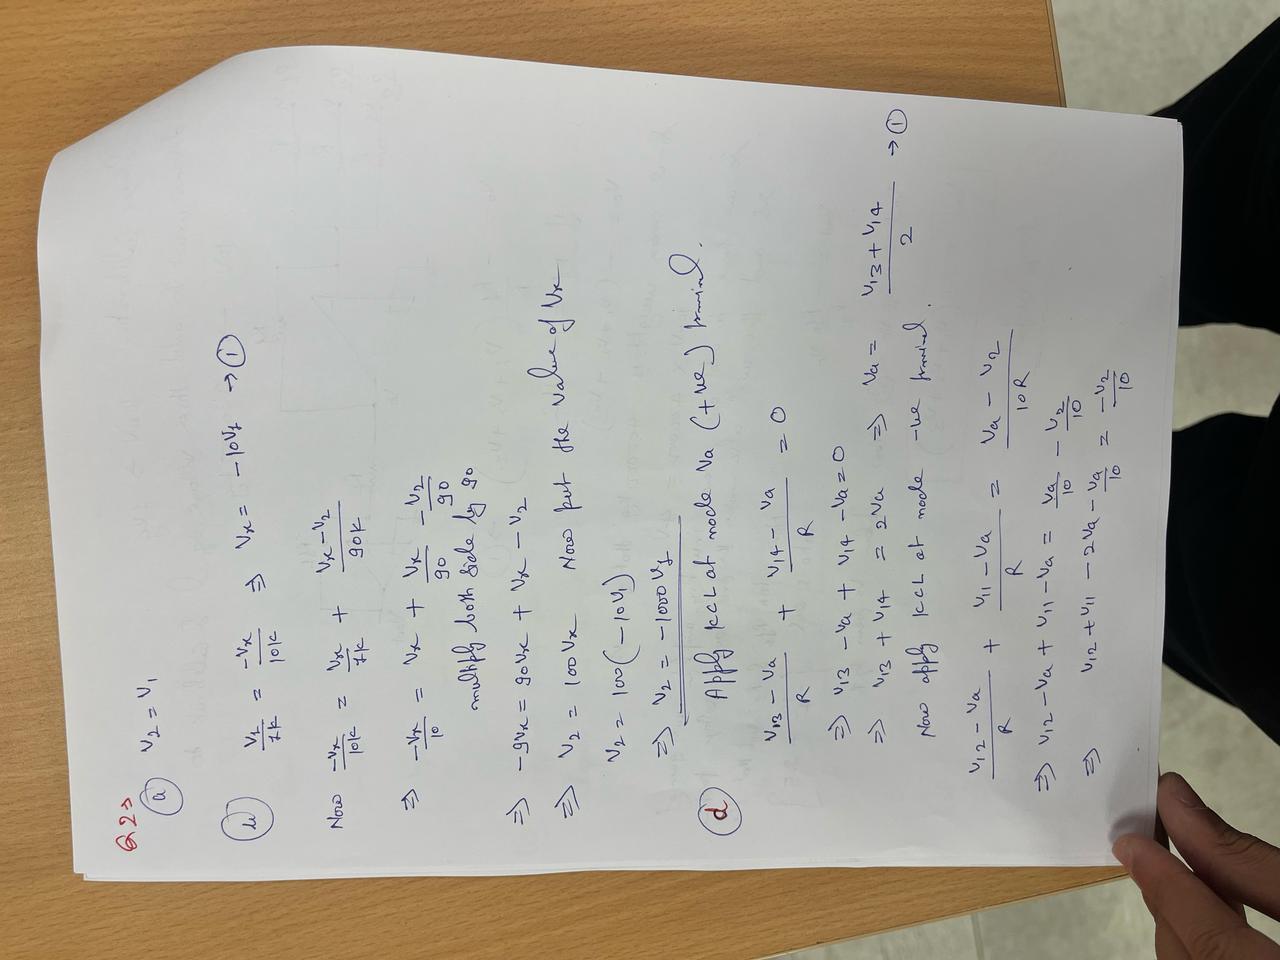 Q2⇒
(a) V₂ = V₁
(b) V₁/1K = -Vx/10K ⇒ Vx = -10V₁ → ①
Now -Vx/10K = Vx/1K + (Vx - V₂)/90K
⇒ -Vx/10 = Vx + Vx/90 - V₂/90
multiply both side by 90
⇒ -9Vx = 90Vx + Vx - V₂
⇒ V₂ = 100Vx Now put the value of Vx
V₂ = 100(-10V₁)
⇒ V₂ = -1000V₁
(d) Apply KCL at node Va (+ve) terminal.
(V13 - Va)/R + (V14 - Va)/R = 0
⇒ V13 - Va + V14 - Va = 0
⇒ V13 + V14 = 2Va ⇒ Va = (V13 + V14)/2 → ①
Now apply KCL at node -ve terminal.
(V12 - Va)/R + (V11 - Va)/R = (Va - V2)/10R
⇒ V12 - Va + V11 - Va = Va/10 - V2/10
⇒ V12 + V11 - 2Va - Va/10 = -V2/10